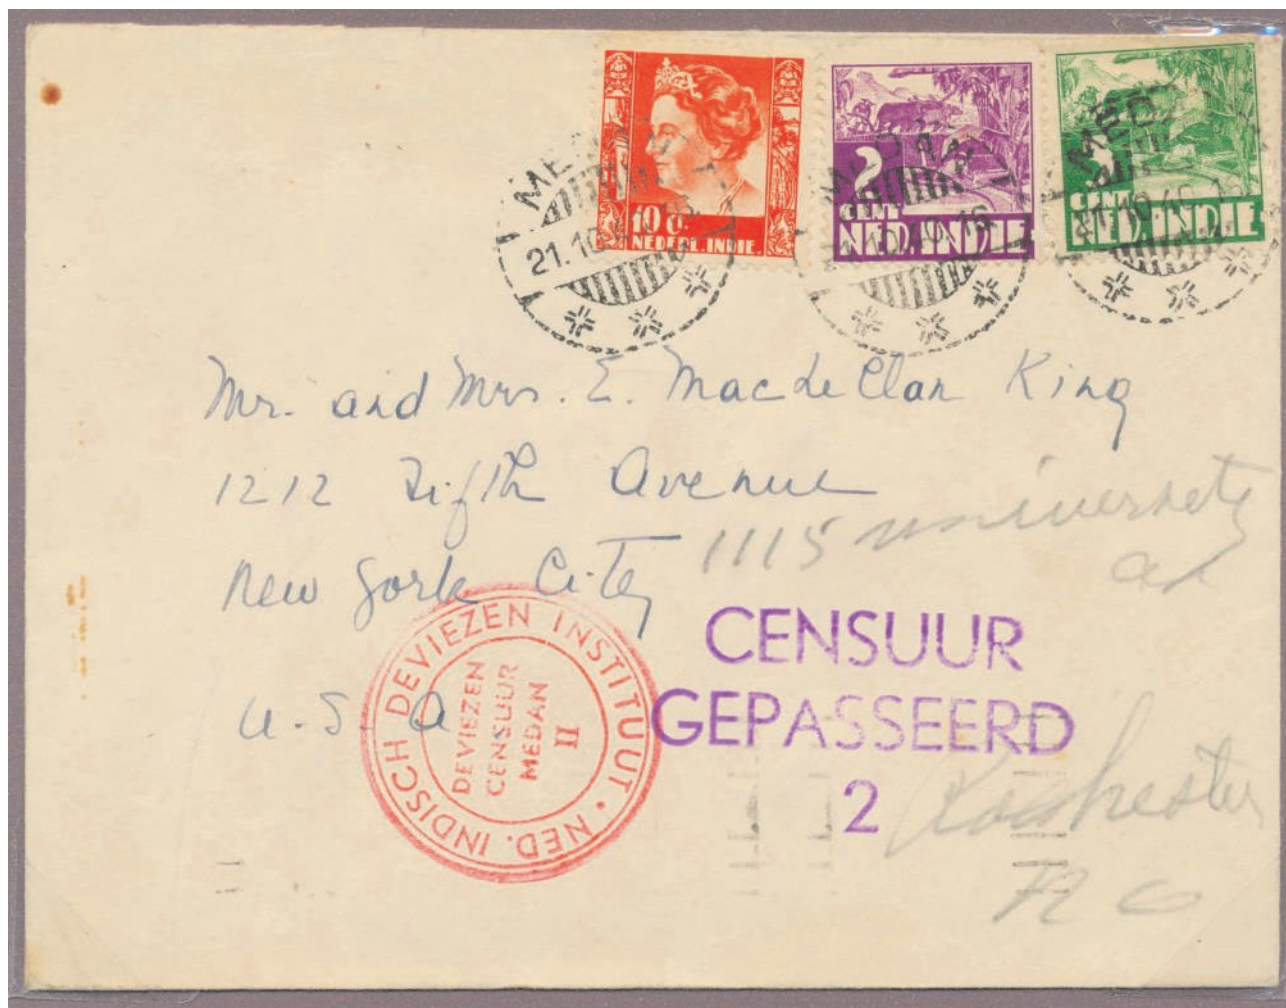 10 C.
NEDERL. INDIE.
2
CENT
NED. INDIE
CENT
NED. INDIE
MEDAN
21.10.40.16
MEDAN
1.10.40.16
MED
21.10.40.1
Mr. and Mrs. E. MacLeClan King
1212 Fifth Avenue
New York City
U.S.A
1115 University
Rochester
NED. INDISCH DEVIEZEN INSTITUUT
DEVIEZEN
CENSUUR
MEDAN
II
CENSUUR
GEPASSEERD
2